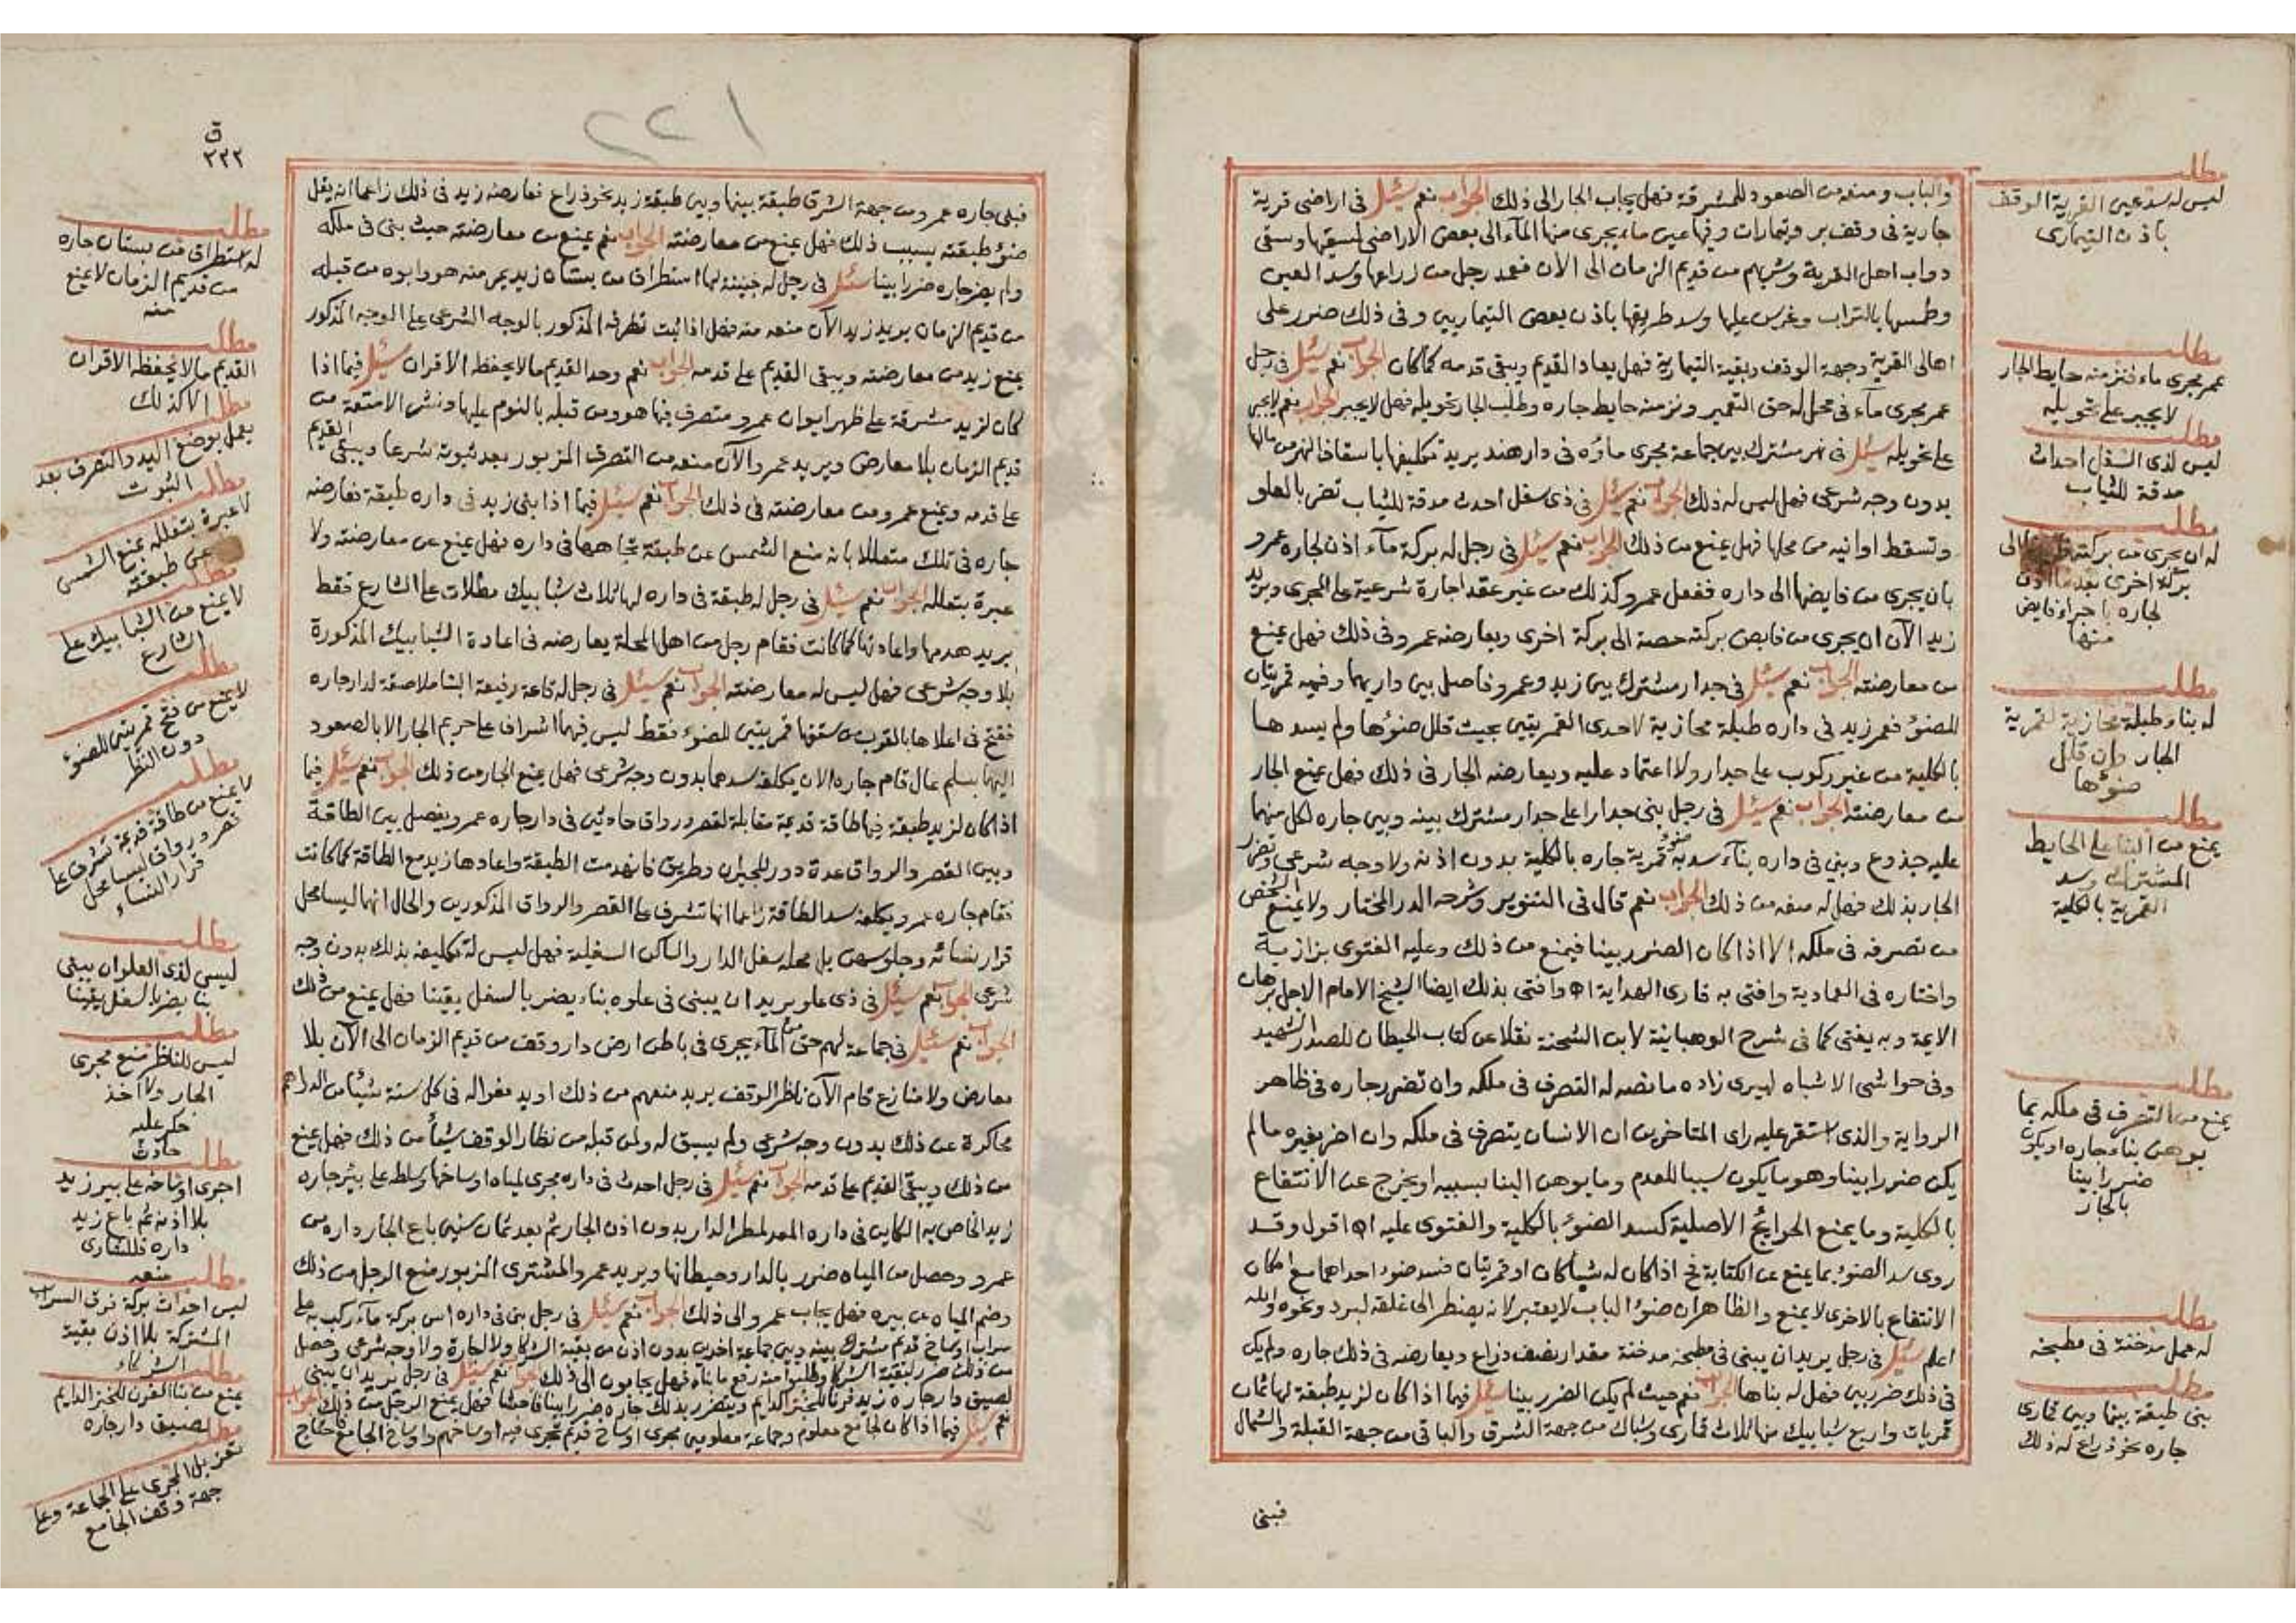 مطلب
ليس له سد عين القرية الوقف
باذن التيمارى
مطلب
عمر مجرى ماء فنز منه حايط الجار
لا يجبر على تحويله
مطلب
ليس لذى السفل احداث
مدقة للثياب
مطلب
له ان يجرى من بركته الى
بركة اخرى بعد ما اذن
لجاره باجراء فايض
منها
مطلب
له بناء طبلة محازية لقمرية
الجار وان قلل
ضوءها
مطلب
يمنع من البناء على الحايط
المشترك وسد
القمرية بالكلية
مطلب
يمنع من التصرف فى ملكه بما
يوهن بناء جاره او يكون
ضررا بينا
بالجار
مطلب
له عمل مدخنة فى مطبخه
مطلب
بنى طبقة بينها وبين قمارى
جاره نحو ذراع له ذلك
والباب ومنعه من الصعود للمشرقة فهل يجاب الجار الى ذلك الجواب نعم سئل فى اراضى قرية
جارية فى وقف بر وتيمارات وفيها عين ماء يجرى منها الماء الى بعض الاراضى لسقيها وسقى
دواب اهل القرية وشربهم من قديم الزمان الى الان فعمد رجل من زراعها وسد العين
وطمسها بالتراب وغرس عليها وسد طريقها باذن بعض التيماريين وفى ذلك ضرر على
اهالى القرية وجهة الوقف وبقية التيمارية فهل يعاد القديم ويبقى قدمه كما كان الجواب نعم سئل فى رجل
عمر مجرى ماء فى محل له حق التعمير ونز منه حايط جاره وطلب الجار تحويله فهل لا يجبر الجواب نعم لا يجبر
على تحويله سئل فى نهر مشترك بين جماعة مجرى ماؤه فى دار هند يريد تكليفها باسقاذ النهر من مالها
بدون وجه شرعى فهل ليس له ذلك الجواب نعم سئل فى ذى سفل احدث مدقة للثياب تضر بالعلو
وتسقط اوانيه من محلها فهل يمنع من ذلك الجواب نعم سئل فى رجل له بركة ماء اذن لجاره عمرو
بان يجرى من فايضها الى داره ففعل عمرو كذلك من غير عقد اجارة شرعية على المجرى ويريد
زيد الآن ان يجرى من فايض بركته حصة الى بركة اخرى ويعارضه عمرو فى ذلك فهل يمنع
من معارضته الجواب نعم سئل فى جدار مشترك بين زيد وعمرو فاصل بين داريهما وفيه قمريتان
للضوء فعمر زيد فى داره طبلة محازية لاحدى القمريتين بحيث قلل ضوءها ولم يسدها
بالكلية من غير ركوب على جدار ولا اعتماد عليه ويعارضه الجار فى ذلك فهل يمنع الجار
من معارضته الجواب نعم سئل فى رجل بنى جدارا على جدار مشترك بينه وبين جاره لكل منهما
عليه جذوع وبنى فى داره بناء سد به ضوء قمرية جاره بالكلية بدون اذنه ولا وجه شرعى وتضرر
الجار بذلك فهل له منعه من ذلك الجواب نعم قال فى التنوير وشرحه الدر المختار ولا يمنع الشخص
من تصرفه فى ملكه الا اذا كان الضرر بينا فيمنع من ذلك وعليه الفتوى بزازية
واختاره فى العمادية وافتى به قارى الهداية اه وافتى بذلك ايضا الشيخ الامام الاجل برهان
الايمة وبه يفتى كما فى شرح الوهبانية لابن الشحنة نقلا عن كتاب الحيطان للصدر الشهيد
وفى حواشى الاشباه لبيرى زاده ما نصه له التصرف فى ملكه وان تضرر جاره فى ظاهر
الرواية والذى استقر عليه راى المتاخرين ان الانسان يتصرف فى ملكه وان اضر بغيره ما لم
يكن ضررا بينا وهو ما يكون سببا للهدم وما يوهن البنا بسببه او يخرج عن الانتفاع
بالكلية وما يمنع الحوايج الاصلية كسد الضوء بالكلية والفتوى عليه اه اقول وقد
روى سد الضوء بما يمنع عن الكتابة فح اذا كان له شباكان او قمريتان فسد ضوء احداهما مع امكان
الانتفاع بالاخرى لا يمنع والظاهر ان ضوء الباب لا يعتبر لانه يضطر الى غلقه لبرد ونحوه والله
اعلم سئل فى رجل يريد ان يبنى فى مطبخه مدخنة مقدار نصف ذراع ويعارضه فى ذلك جاره ولم يكن
فى ذلك ضرر بين فهل له بناها الجواب نعم حيث لم يكن الضرر بينا سئل فيما اذا كان لزيد طبقة لها ثمان
قمريات واربع شبابيك منها ثلاث قمارى وشباك من جهة الشرق والباقى من جهة القبلة والشمال
فبنى
٢٢١
ق
٢٢٢
فبنى جاره عمرو من جهة الشرق طبقة بينها وبين طبقة زيد نحو ذراع فعارضه زيد فى ذلك زاعما انه يقل
ضوء طبقته بسبب ذلك فهل يمنع من معارضته الجواب نعم يمنع من معارضته حيث بنى فى ملكه
ولم يضر جاره ضررا بينا سئل فى رجل له جنينة لها استطراق من بستان زيد يمر منه هو وابوه من قبله
من قديم الزمان يريد زيد الآن منعه منه فهل اذا ثبت تطرقه المذكور بالوجه الشرعى على الوجه المذكور
يمنع زيد من معارضته ويبقى القديم على قدمه الجواب نعم وحد القديم ما لا يحفظ الاقران سئل فيما اذا
كان لزيد مشرقة على ظهر ايوان عمرو متصرف فيها هو ومن قبله بالنوم عليها ونشر الامتعة من
قديم الزمان بلا معارض ويريد عمرو الآن منعه من التصرف المزبور بعد ثبوته شرعا ويبقى القديم
على قدمه ويمنع عمرو من معارضته فى ذلك الجواب نعم سئل فيما اذا بنى زيد فى داره طبقة فعارضه
جاره فى تلك متعللا بانه منع الشمس عن طبقة تجاهها فى داره فهل يمنع عن معارضته ولا
عبرة بتعلله الجواب نعم سئل فى رجل له طبقة فى داره لها ثلاث شبابيك مطلات على الشارع فقط
يريد هدمها واعادتها كما كانت فقام رجل من اهل المحلة يعارضه فى اعادة الشبابيك المذكورة
بلا وجه شرعى فهل ليس له معارضته الجواب نعم سئل فى رجل له قاعة رفيعة البنا ملاصقة لدار جاره
ففتح فى اعلاها بالقرب من سقفها قمريتين للضوء فقط ليس فيهما اشراف على حريم الجار الا بالصعود
اليهما بسلم عال قام جاره الان يكلفه سدهما بدون وجه شرعى فهل يمنع الجار من ذلك الجواب نعم سئل فيما
اذا كان لزيد طبقة فيها طاقة قديمة مقابلة لقصر ورواق حادثين فى دار جاره عمرو ويفصل بين الطاقة
وبين القصر والرواق عدة دور للجيران وطريق فانهدمت الطبقة واعادها زيد مع الطاقة كما كانت
فقام جاره عمرو يكلفه سد الطاقة زاعما انها تشرف على القصر والرواق المذكورين والحال انهما ليسا محل
قرار نسائه وجلوسهن بل محله سفل الدار والساكن السفلية فهل ليس له تكليفه بذلك بدون وجه
شرعى الجواب نعم سئل فى ذى علو يريد ان يبنى فى علوه بناء يضر بالسفل يقينا فهل يمنع من ذلك
الجواب نعم سئل فى جماعة لهم حق من الماء يجرى فى باطن ارض دار وقف من قديم الزمان الى الآن بلا
معارض ولا منازع قام الآن ناظر الوقف يريد منعهم من ذلك او يدفعوا له فى كل سنة شيئا من الدراهم
محاكرة عن ذلك بدون وجه شرعى ولم يسبق له ولمن قبله من نظار الوقف شيئا من ذلك فهل يمنع
من ذلك ويبقى القديم على قدمه الجواب نعم سئل فى رجل احدث فى داره مجرى لمياه اوساخها وسلط على بئر جاره
زيد الخاص به الكاين فى داره المعد لمطر الدار بدون اذن الجار ثم بعد ثمان سنين باع الجار داره من
عمرو وحصل من المياه ضرر بالدار وحيطانها ويريد عمرو المشترى المزبور منع الرجل من ذلك
وضم المياه عن بيره فهل يجاب عمرو الى ذلك الجواب نعم سئل فى رجل بنى فى داره اس بركة ماء ركب به على
سراب اوساخ قديم مشترك بينه وبين جماعة اخرين بدون اذن من بقية الشركا ولا اجارة ولا وجه شرعى وحصل
من ذلك ضرر لبقية الشركا وطلبوا منه رفع ما بناه فهل يجابون الى ذلك الجواب نعم سئل فى رجل يريد ان يبنى
لصيق دار جاره زيد فرنا للخبز الدايم ويتضرر بذلك جاره ضررا بينا فاحشا فهل يمنع الرجل من ذلك الجواب
نعم سئل فيما اذا كان لجامع معلوم وجماعة معلومين مجرى اوساخ قديم تجرى فيه اوساخهم واوساخ الجامع فاحتاج
مطلب
له استطراق من بستان جاره
من قديم الزمان لا يمنع
منه
مطلب
القديم ما لا يحفظه الاقران
الا كذلك
مطلب
يعمل بوضع اليد والتصرف بعد
الثبوت
مطلب
لا عبرة بتعلله بمنع الشمس
عن طبقته
مطلب
لا يمنع من الشبابيك على
الشارع
مطلب
لا يمنع من فتح قمريتين للضوء
دون النظر
مطلب
لا يمنع من طاقة قديمة تشرف على
قصر ورواق ليسا محل
قرار النساء
مطلب
ليس لذى العلو ان يبنى
بنا يضر بالسفل يقينا
مطلب
ليس للناظر منع مجرى
الجار ولا اخذ
حكر عليه
حادث
مطلب
اجرى اوساخه على بير زيد
بلا اذنه ثم باع زيد
داره فللشارى
منعه
مطلب
ليس احداث بركة فوق السراب
المشتركة بلا اذن بقية
الشركاء
مطلب
يمنع من بنا الفرن للخبز الدايم
لصيق دار جاره
مطلب
تعزيل المجرى على الجماعة وعلى
جهة وقف الجامع